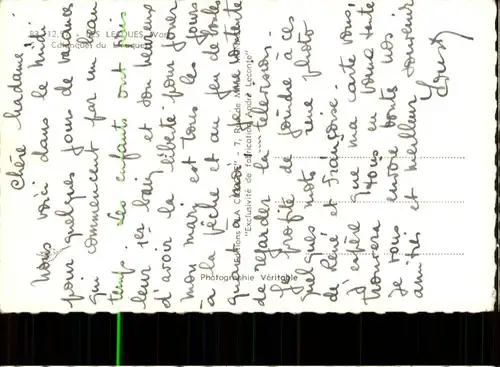 83.12. LES LECQUES (Var)
Calanques du
Chère Madame,
Nous voici dans le midi
pour quelques jours de vacances
qui commencent par un beau
temps. Les enfants ont pris
leur 1er bain et son heureux
d'avoir la liberté pour jouer
mon mari est tous les jours
à la pêche et au jeu de boules
quand à moi je me contente
de regarder la télévision.
Je profite de joindre à ces
quelques mots une photo
de René et Françoise.
J'espère que ma carte vous
trouvera tous en bonne santé
Je vous envoie toutes nos
amitiés et meilleur souvenir
"Exclusivité de fabrication André Leconte"
Photographie Véritable